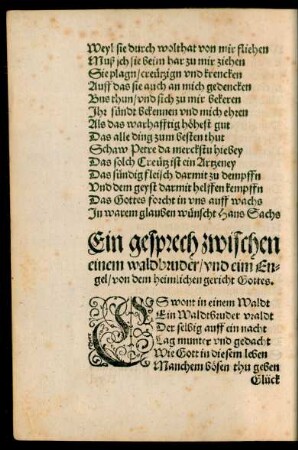 Weyl sie durch wolthat von mir fliehen
Muß jch sie beim har zu mir ziehen
Sie plagn/creützign vnd krencken
Auff das sie auch an mich gedencken
Bus thun/vnd sich zu mir bekeren
Ihr sündt bekennen vnd mich ehren
Als das warhafftig höhest gut
Das alle ding zum besten thut
Schaw Petre da merckstu hiebey
Das solch Creütz ist ein Artzeney
Das sündig fleisch darmit zu dempffn
Vnd dem geyst darmit helffen kempffn
Das Gottes forcht in vns auff wachs
In warem glauben wünscht Hans Sachs
Ein gesprech zwischen
einem waldbruder/vnd eim En-
gel/von dem heimlichen gericht Gottes.
ES wont in einem Waldt
Ein Waldtbruder vraldt
Der selbig auff ein nacht
Lag munter vnd gedacht
Wie Gott in diesem leben
Manchem bösen thu geben
Glück